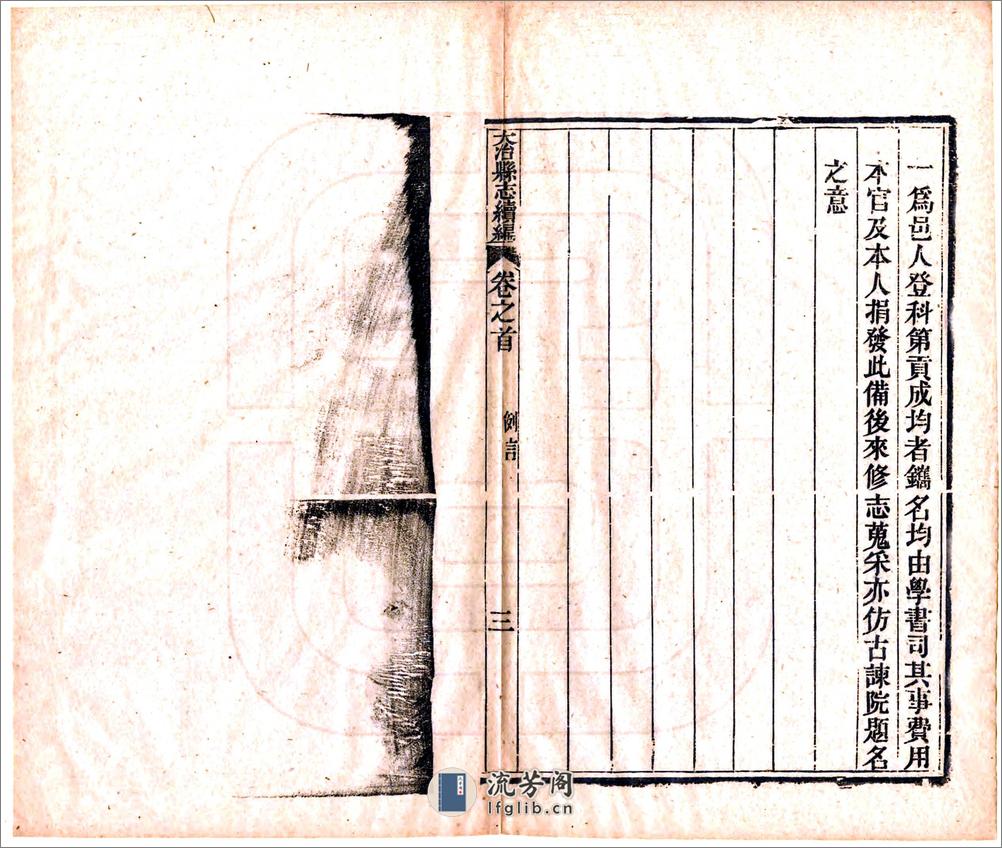 一爲邑人登科第貢成均者鐫名均由學書司其事費用
本官及本人捐發此備後來修志蒐采亦仿古諫院題名
之意
大冶縣志續編
卷之首
例言
三
流芳阁
lfglib.cn